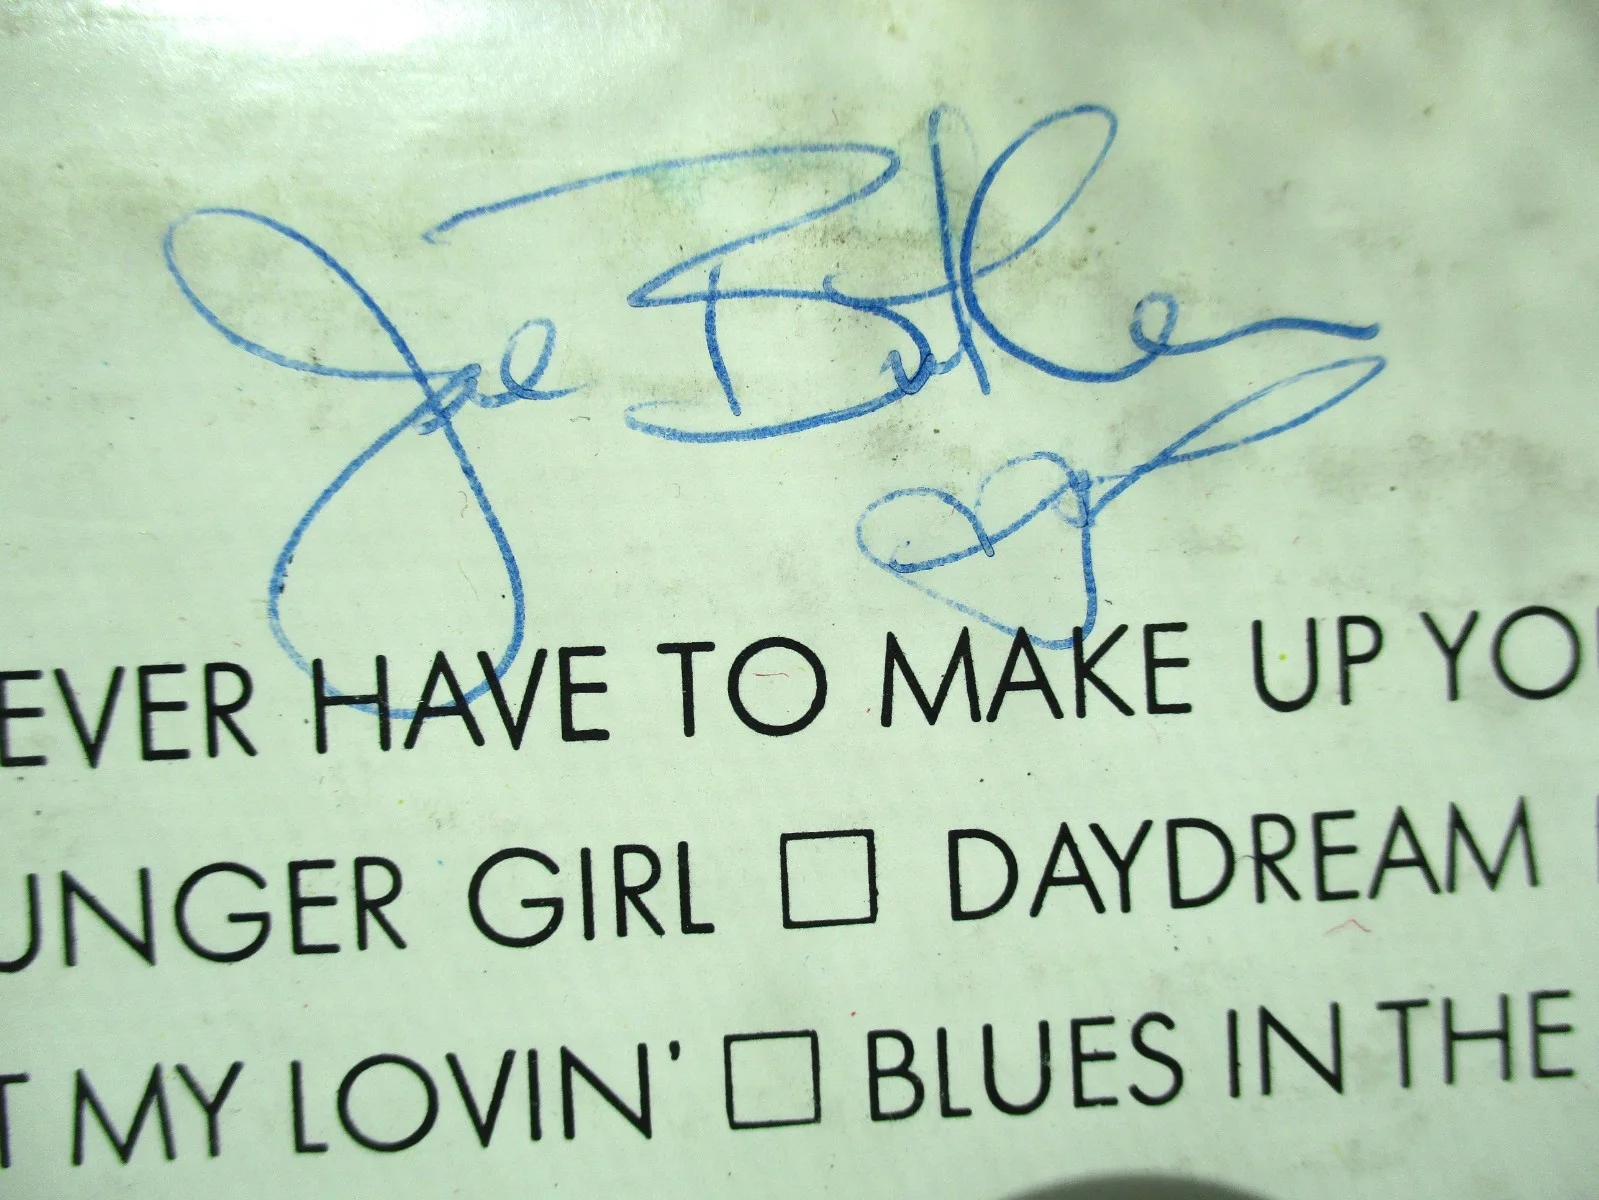 Joe Butler
EVER HAVE TO MAKE UP YO
UNGER GIRL □ DAYDREAM
T MY LOVIN' □ BLUES IN THE